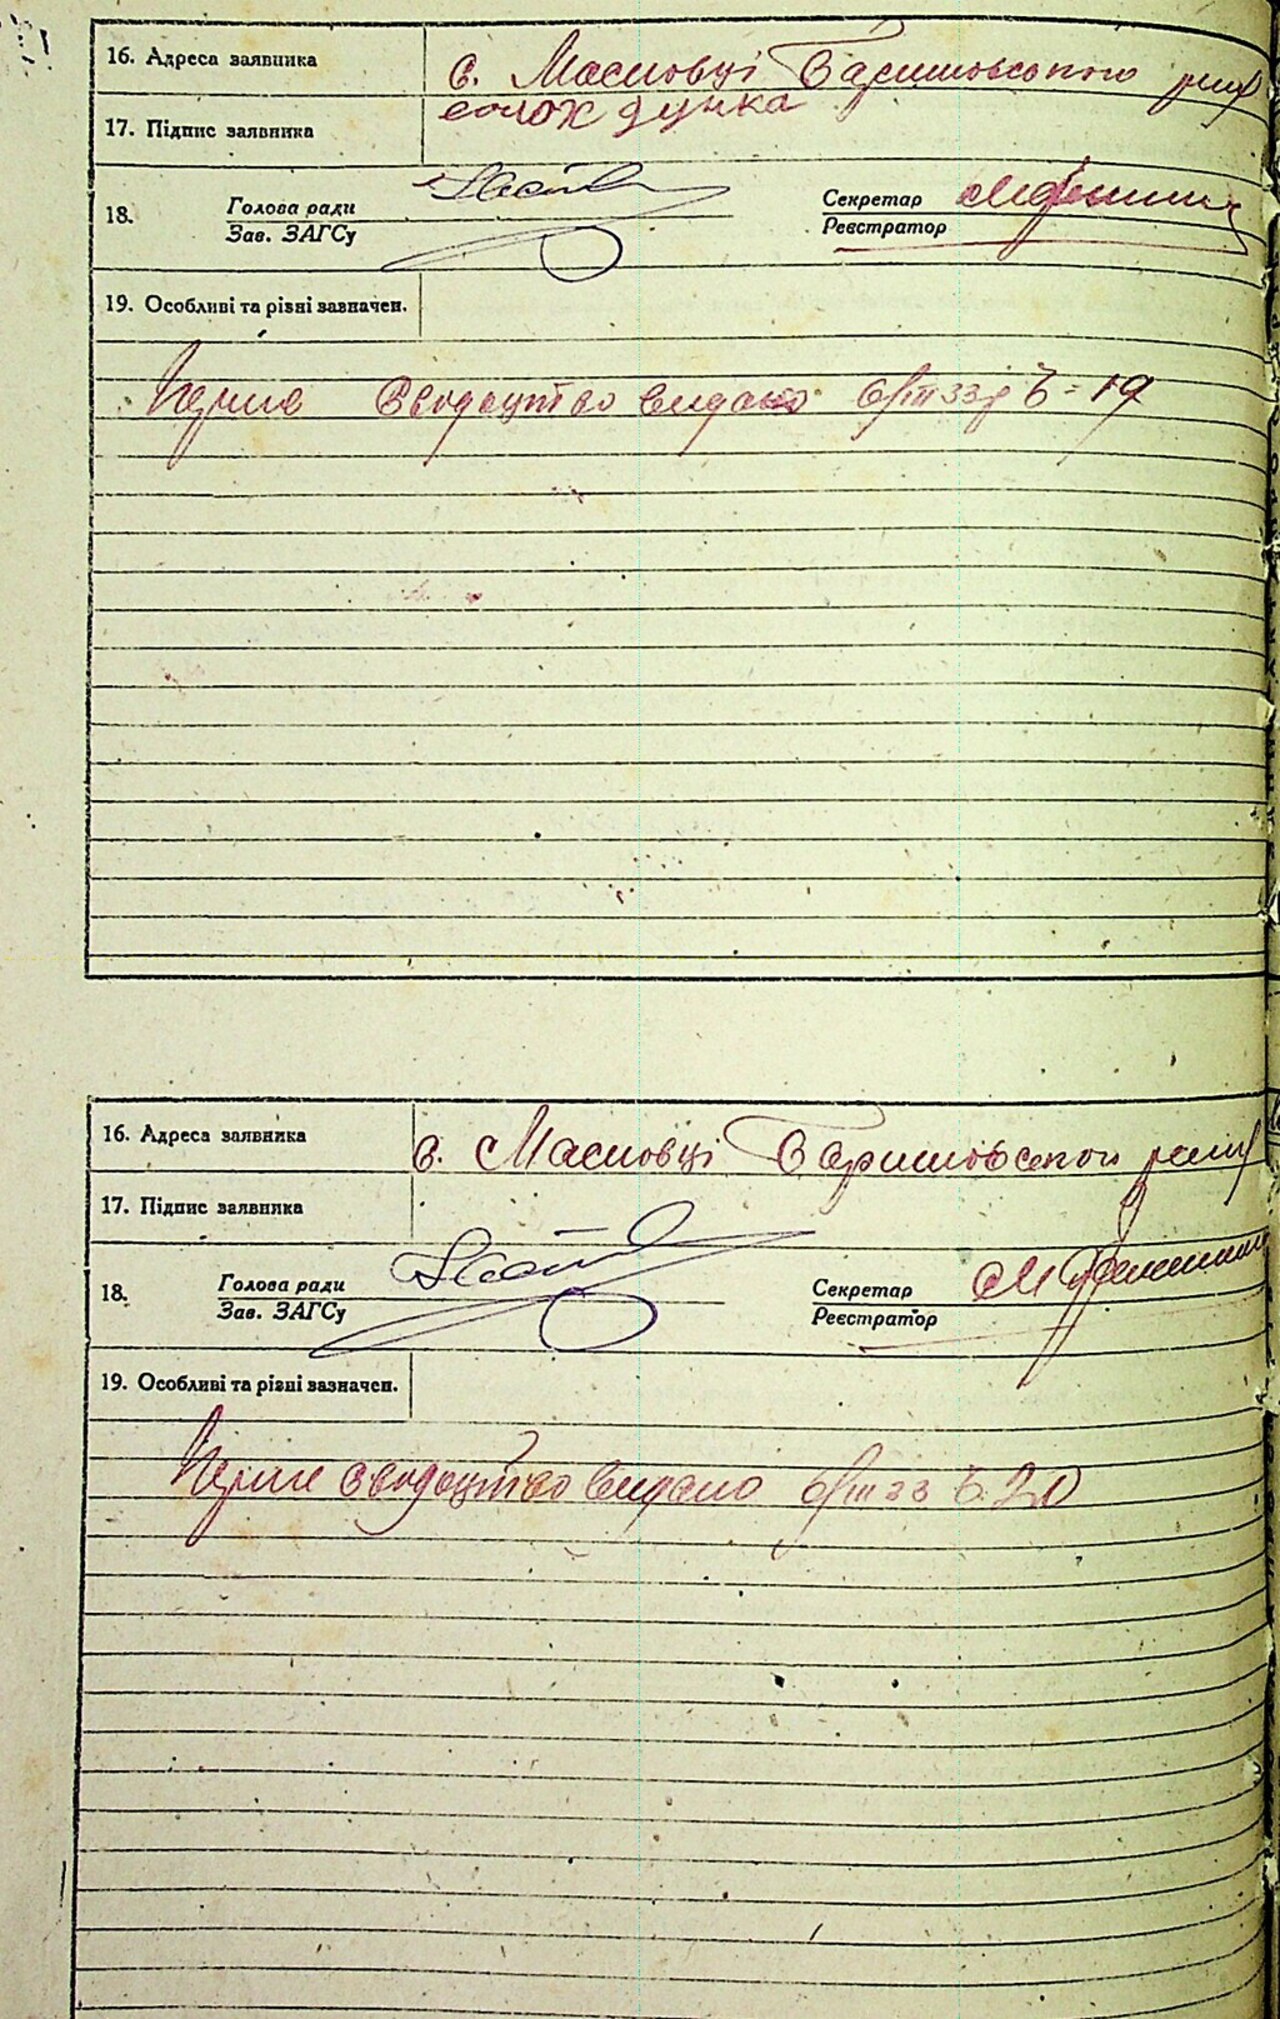 16. Адреса заявника с. Масловці Баришовського району
17. Підпис заявника солох дунка
18. Голова ради Секретар
Зав. ЗАГСу Реєстратор
19. Особливі та різні зазначен.
Перше свідоцтво видано 6/III 33 р Ч = 19
16. Адреса заявника с. Масловці Баришовського району
17. Підпис заявника
18. Голова ради Секретар
Зав. ЗАГСу Реєстратор
19. Особливі та різні зазначен.
Перше свідоцтво видано 6/III 33 Ч. 20